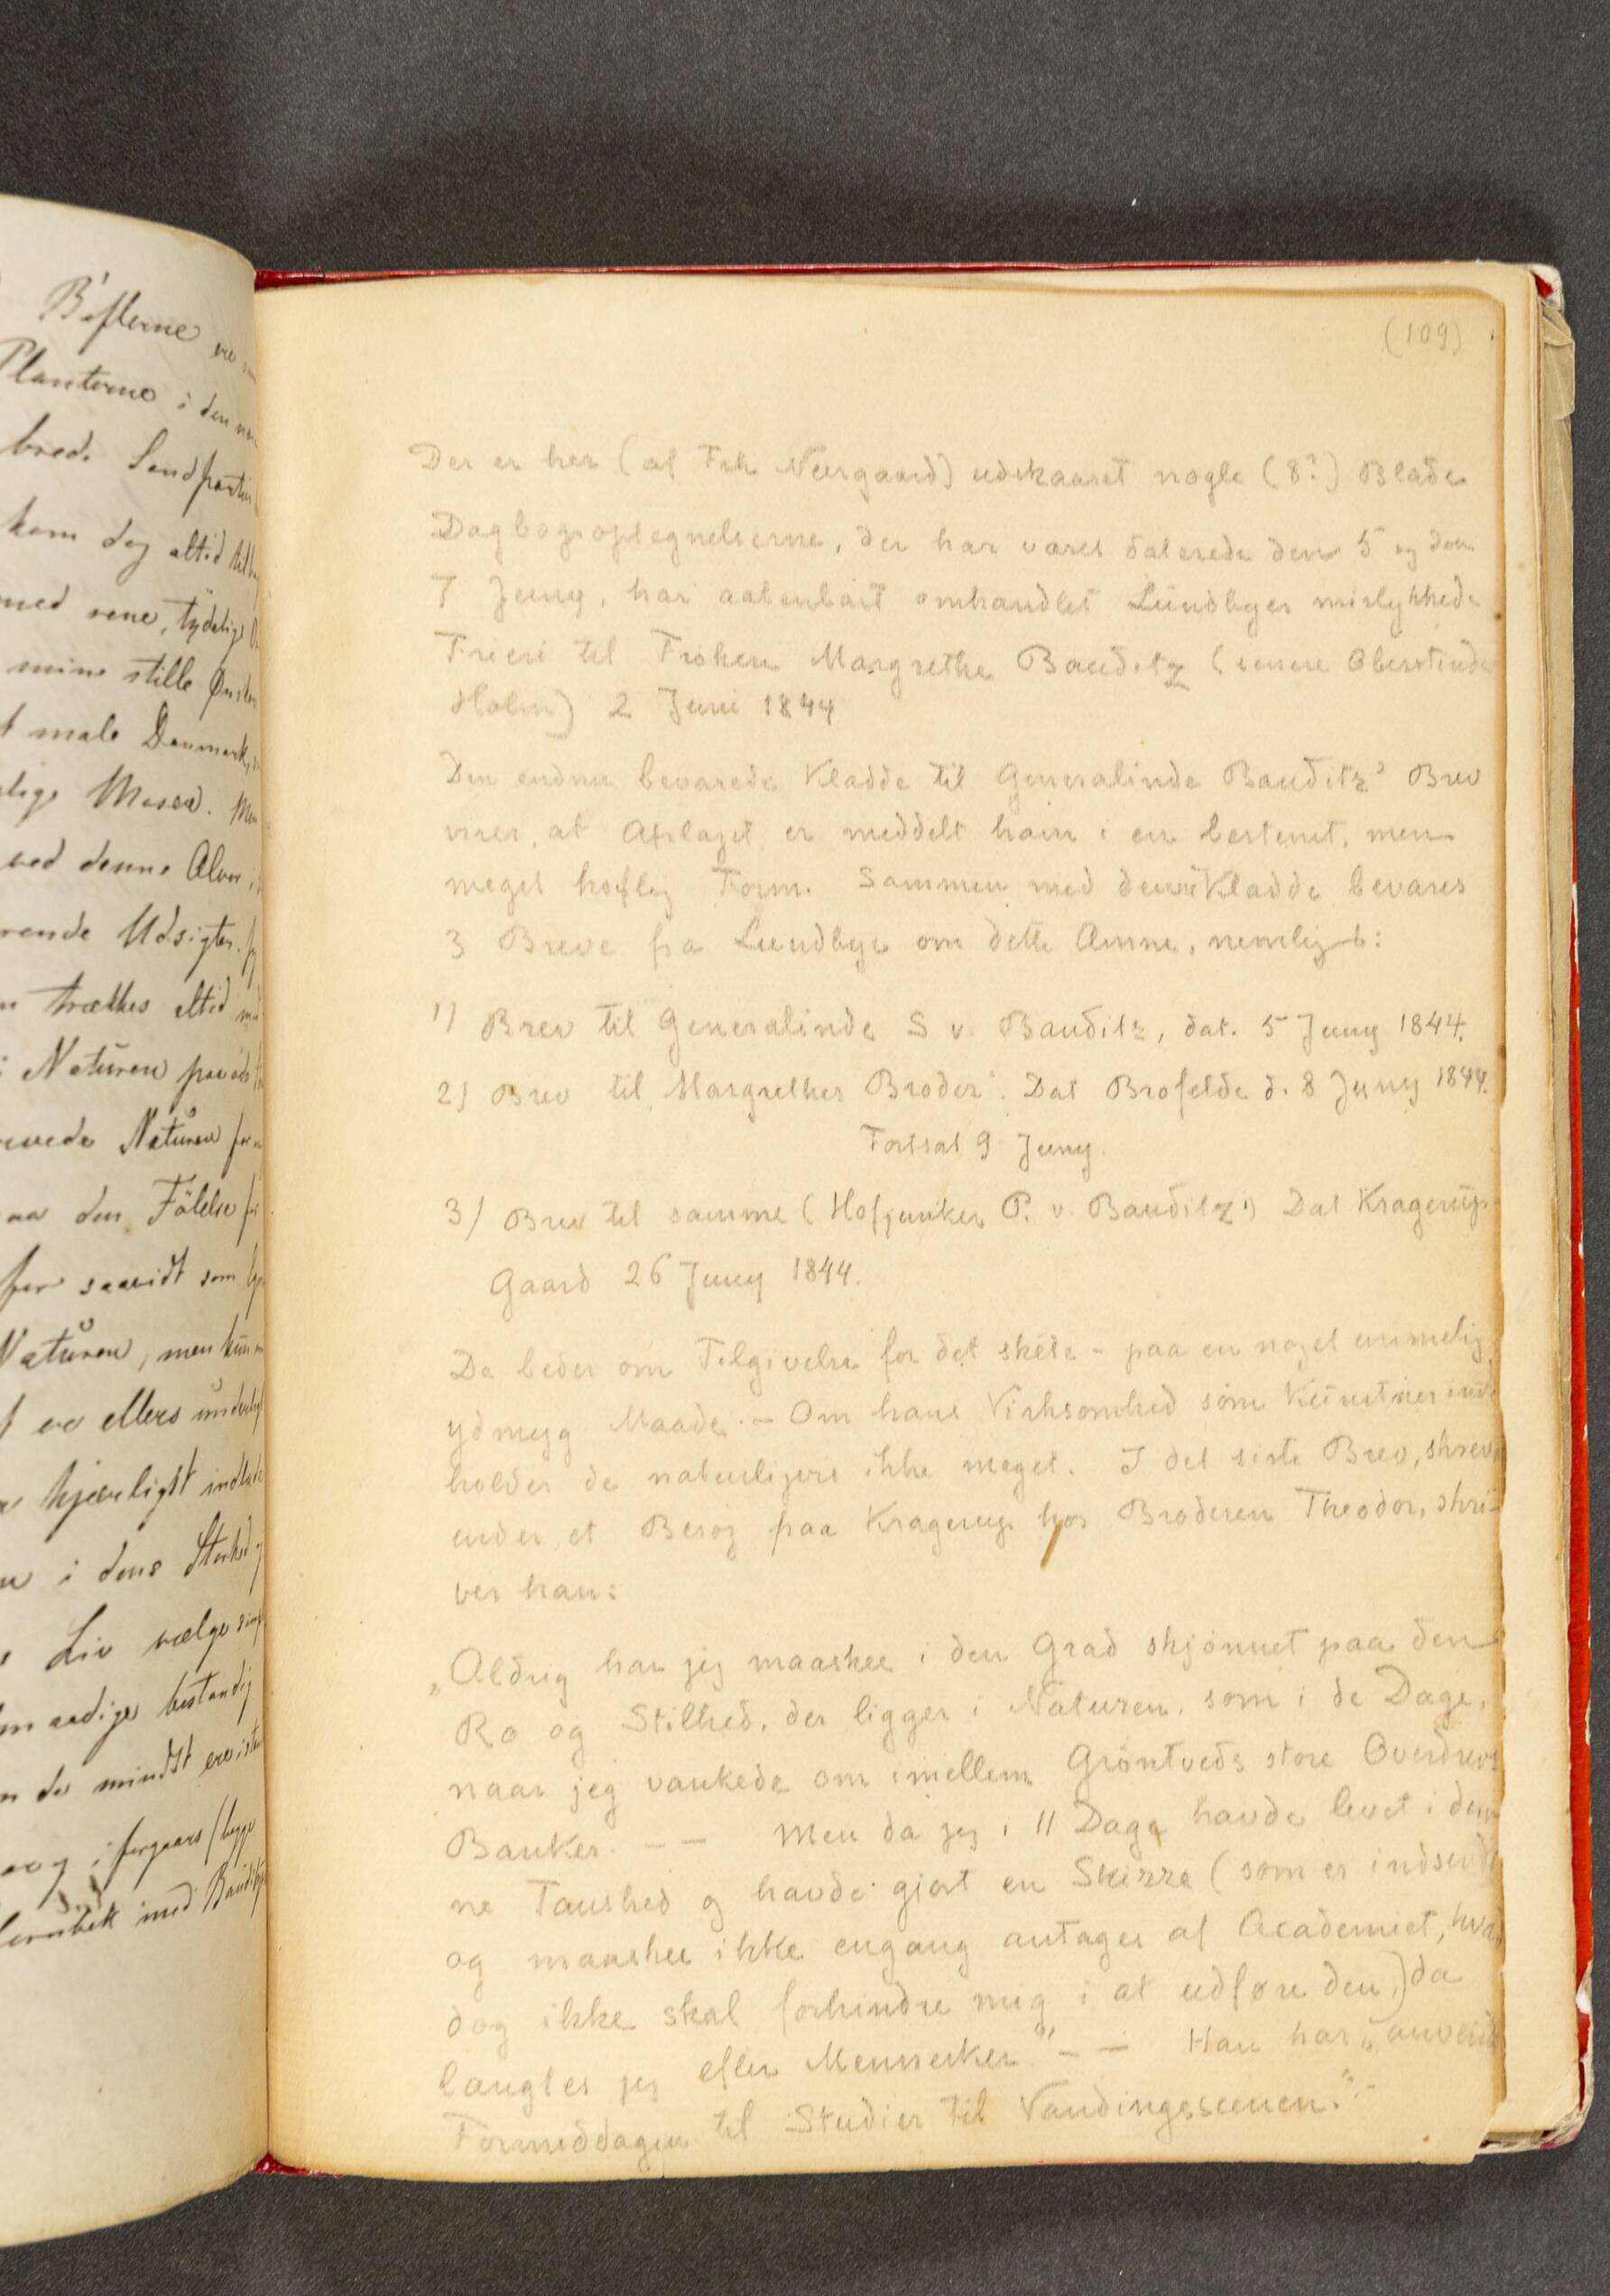 Bøflerne ere
Planterne i den
brede Sandpartier
kom dog altid
med rene, tydelige
mine stille Ønsker
male Danmark,
Moser.
ved denne Alvor
Udsigter.
trækkes altid
i Naturen
Naturen
den Følelse
for saavidt som
Naturen, men kun
er ellers
kjærligst
i dens Storhed
Liv vælge
bestandig
de mindst
i forgaars
med
(109)
Der er her (af Frk. Neergaard) udskaaret nogle (8?) Blade
Dagbogsoptegnelserne, der har været daterede den 5 og den
7 Juny, har aabenbart omhandlet Lundbyes mislykkede
Frieri til Frøken Margrethe Bauditz (senere Oberstinde
Holm) 2 Juni 1844
Den endnu bevarede Kladde til Generalinde Bauditz' Brev
viser, at Afslaget er meddelt ham i en bestemt, men
meget høflig Form. Sammen med denne Kladde bevares
3 Breve fra Lundbye om dette Æmne, nemligt:
1) Brev til Generalinde S v. Bauditz, dat. 5 Juny 1844.
2) Brev til Margrethes Broder. Dat Brofelde d. 8 Juny 1844.
Fortsat 9 Juny.
3) Brev til samme (Hofjunker P. v. Bauditz) Dat Kragerup
Gaard 26 Juny 1844.
De beder om Tilgivelse for det skete - paa en noget ummelig
ydmyg Maade. – Om hans Virksomhed som Kunstner inde
holder de naturligvis ikke meget. I det siste Brev, skrev
under et Besøg paa Kragerup hos Broderen Theodor, skri-
ver han:
„Aldrig har jeg maaskee i den Grad skjønnet paa den
Ro og Stilhed, der ligger i Naturen, som i de Dage,
naar jeg vankede om imellem Grøntveds store Overdrevs
Banker. — — Men da jeg i 11 Dage havde levet i den
ne Taushed og havde gjort en Skizze (som er indsendt
og maaskee ikke engang antages af Academiet, hvad
dog ikke skal forhindre mig i at udføre den,) da
længtes jeg efter Mennesker" — — Han har „anvendt
Formiddagen til Studier til Vandingsscenen."